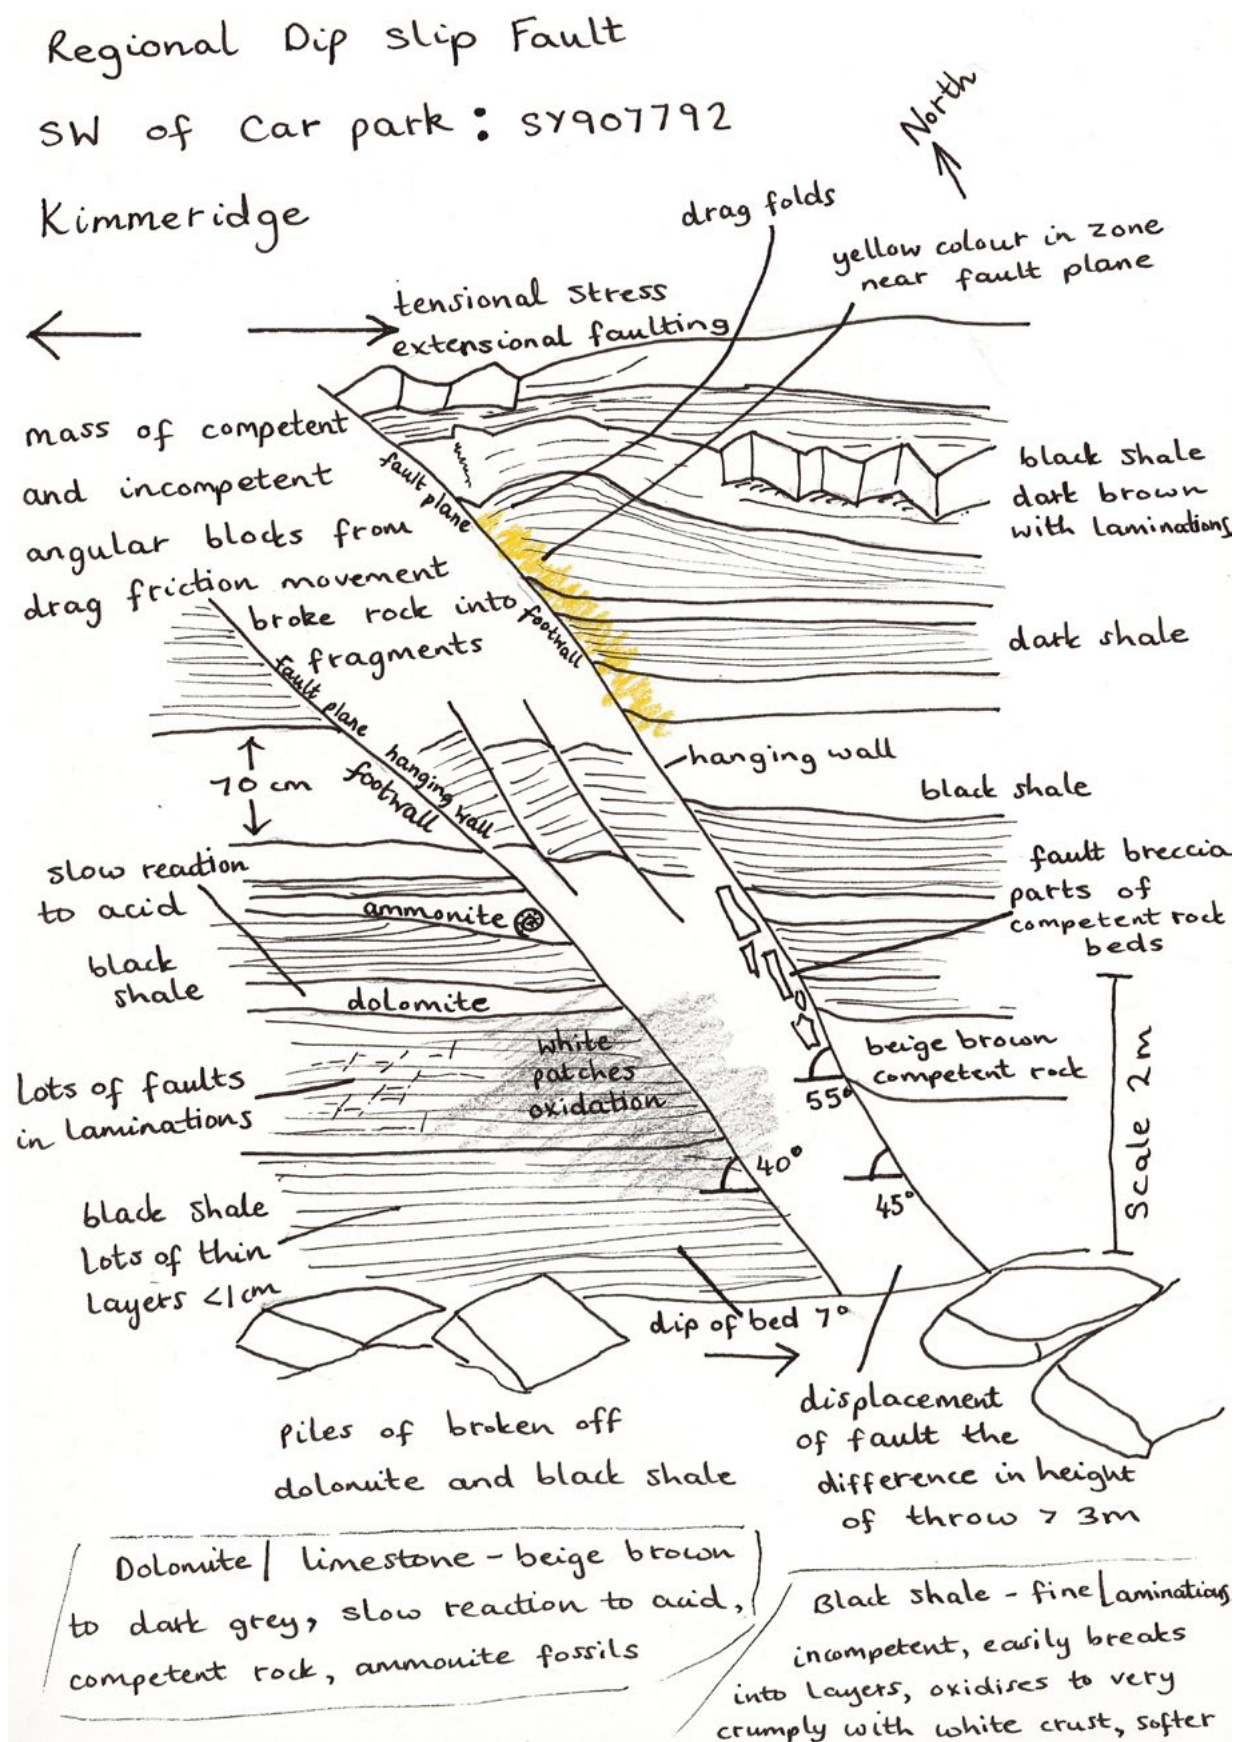 Regional Dip slip Fault
SW of Car park : SY907792
Kimmeridge
North
drag folds
yellow colour in zone
near fault plane
tensional stress
extensional faulting
mass of competent
and incompetent
angular blocks from
drag friction movement
broke rock into
fragments
fault plane
footwall
black shale
dark brown
with laminations
dark shale
fault plane
hanging wall
footwall
70 cm
hanging wall
black shale
slow reaction
to acid
ammonite
fault breccia
parts of
competent rock
beds
black
shale
dolomite
white
patches
oxidation
beige brown
competent rock
55°
Lots of faults
in laminations
40°
45°
Scale 2m
black shale
Lots of thin
Layers <1cm
dip of bed 7°
piles of broken off
dolomite and black shale
displacement
of fault the
difference in height
of throw > 3m
Dolomite / limestone - beige brown
to dark grey, slow reaction to acid,
competent rock, ammonite fossils
Black shale - fine laminations
incompetent, easily breaks
into layers, oxidises to very
crumply with white crust, softer